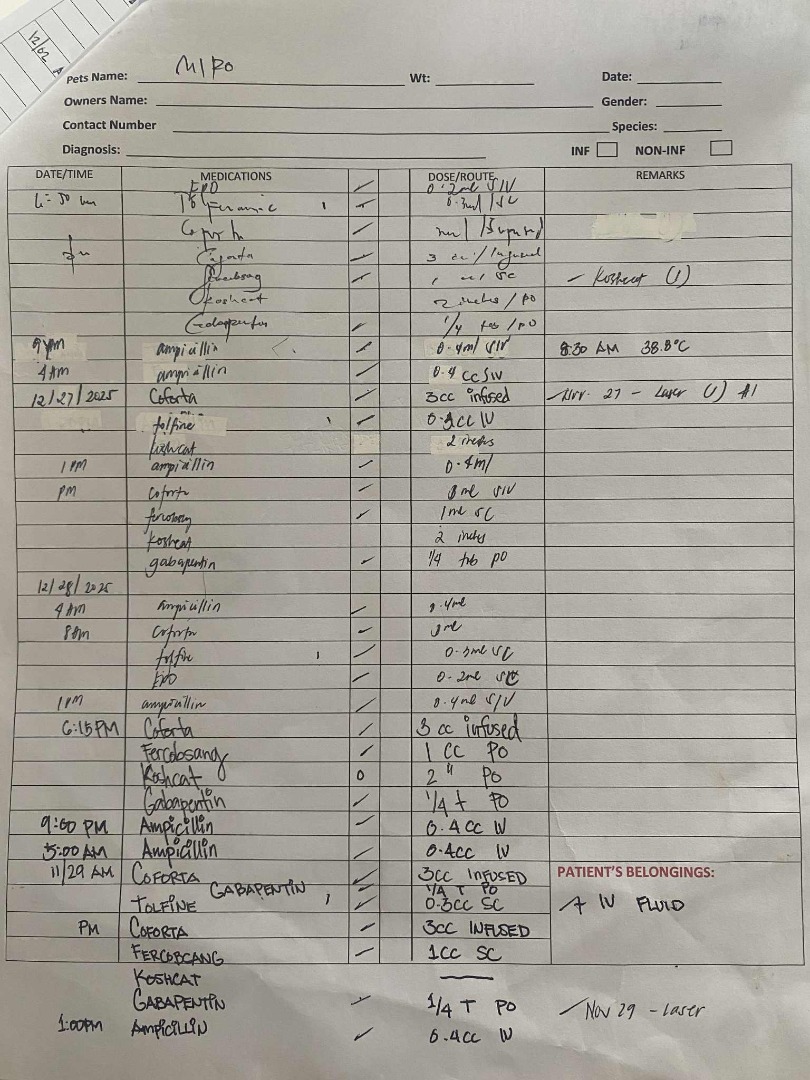 12/02
Pets Name: MIRO Wt: Date:
Owners Name: Gender:
Contact Number Species:
Diagnosis: INF NON-INF
DATE/TIME MEDICATIONS DOSE/ROUTE REMARKS
EPO ✓ 0.2ml SIV
✓ 0.3ml / SC
✓
3 cc / Infused
✓ 1 cc / SC - Koshcat (1)
Koshcat 2 inches / PO
✓ 1/4 tab / PO
9PM ampicillin ✓ 0.4ml SIV 8:30 AM 38.8°C
4AM ampicillin ✓ 0.4 cc SIV
12/27/2025 Coforta ✓ 3cc infused Nov. 27 - Laser (1) #1
tolfine ✓ 0.3cc IV
koshcat 2 inches
1 PM ampicillin ✓ 0.4ml
PM Coforta ✓ 3ml SIV
✓ 1ml SC
Koshcat 2 inches
gabapentin ✓ 1/4 tab PO
12/28/2025
4 AM Ampicillin ✓ 0.4ml
8am Coforta ✓ 3ml
tolfine ✓ 0.3ml SC
EPO ✓ 0.2ml SC
1PM ampicillin ✓ 0.4ml S/V
6:15PM Coforta ✓ 3 cc infused
Fercobsang ✓ 1 CC PO
Koshcat 0 2" PO
Gabapentin ✓ 1/4 t PO
9:00 PM Ampicillin ✓ 0.4 CC IV
5:00 AM Ampicillin ✓ 0.4cc IV
11/29 AM COFORTA ✓ 3CC INFUSED PATIENT'S BELONGINGS:
GABAPENTIN ✓ 1/4 T PO
TOLFINE ✓ 0.3CC SC IV FLUID
PM COFORTA ✓ 3CC INFUSED
FERCOBCANG ✓ 1CC SC
KOSHCAT —
GABAPENTIN ✓ 1/4 T PO ✓ Nov 29 - Laser
1:00PM AMPICILLIN ✓ 0.4CC IV